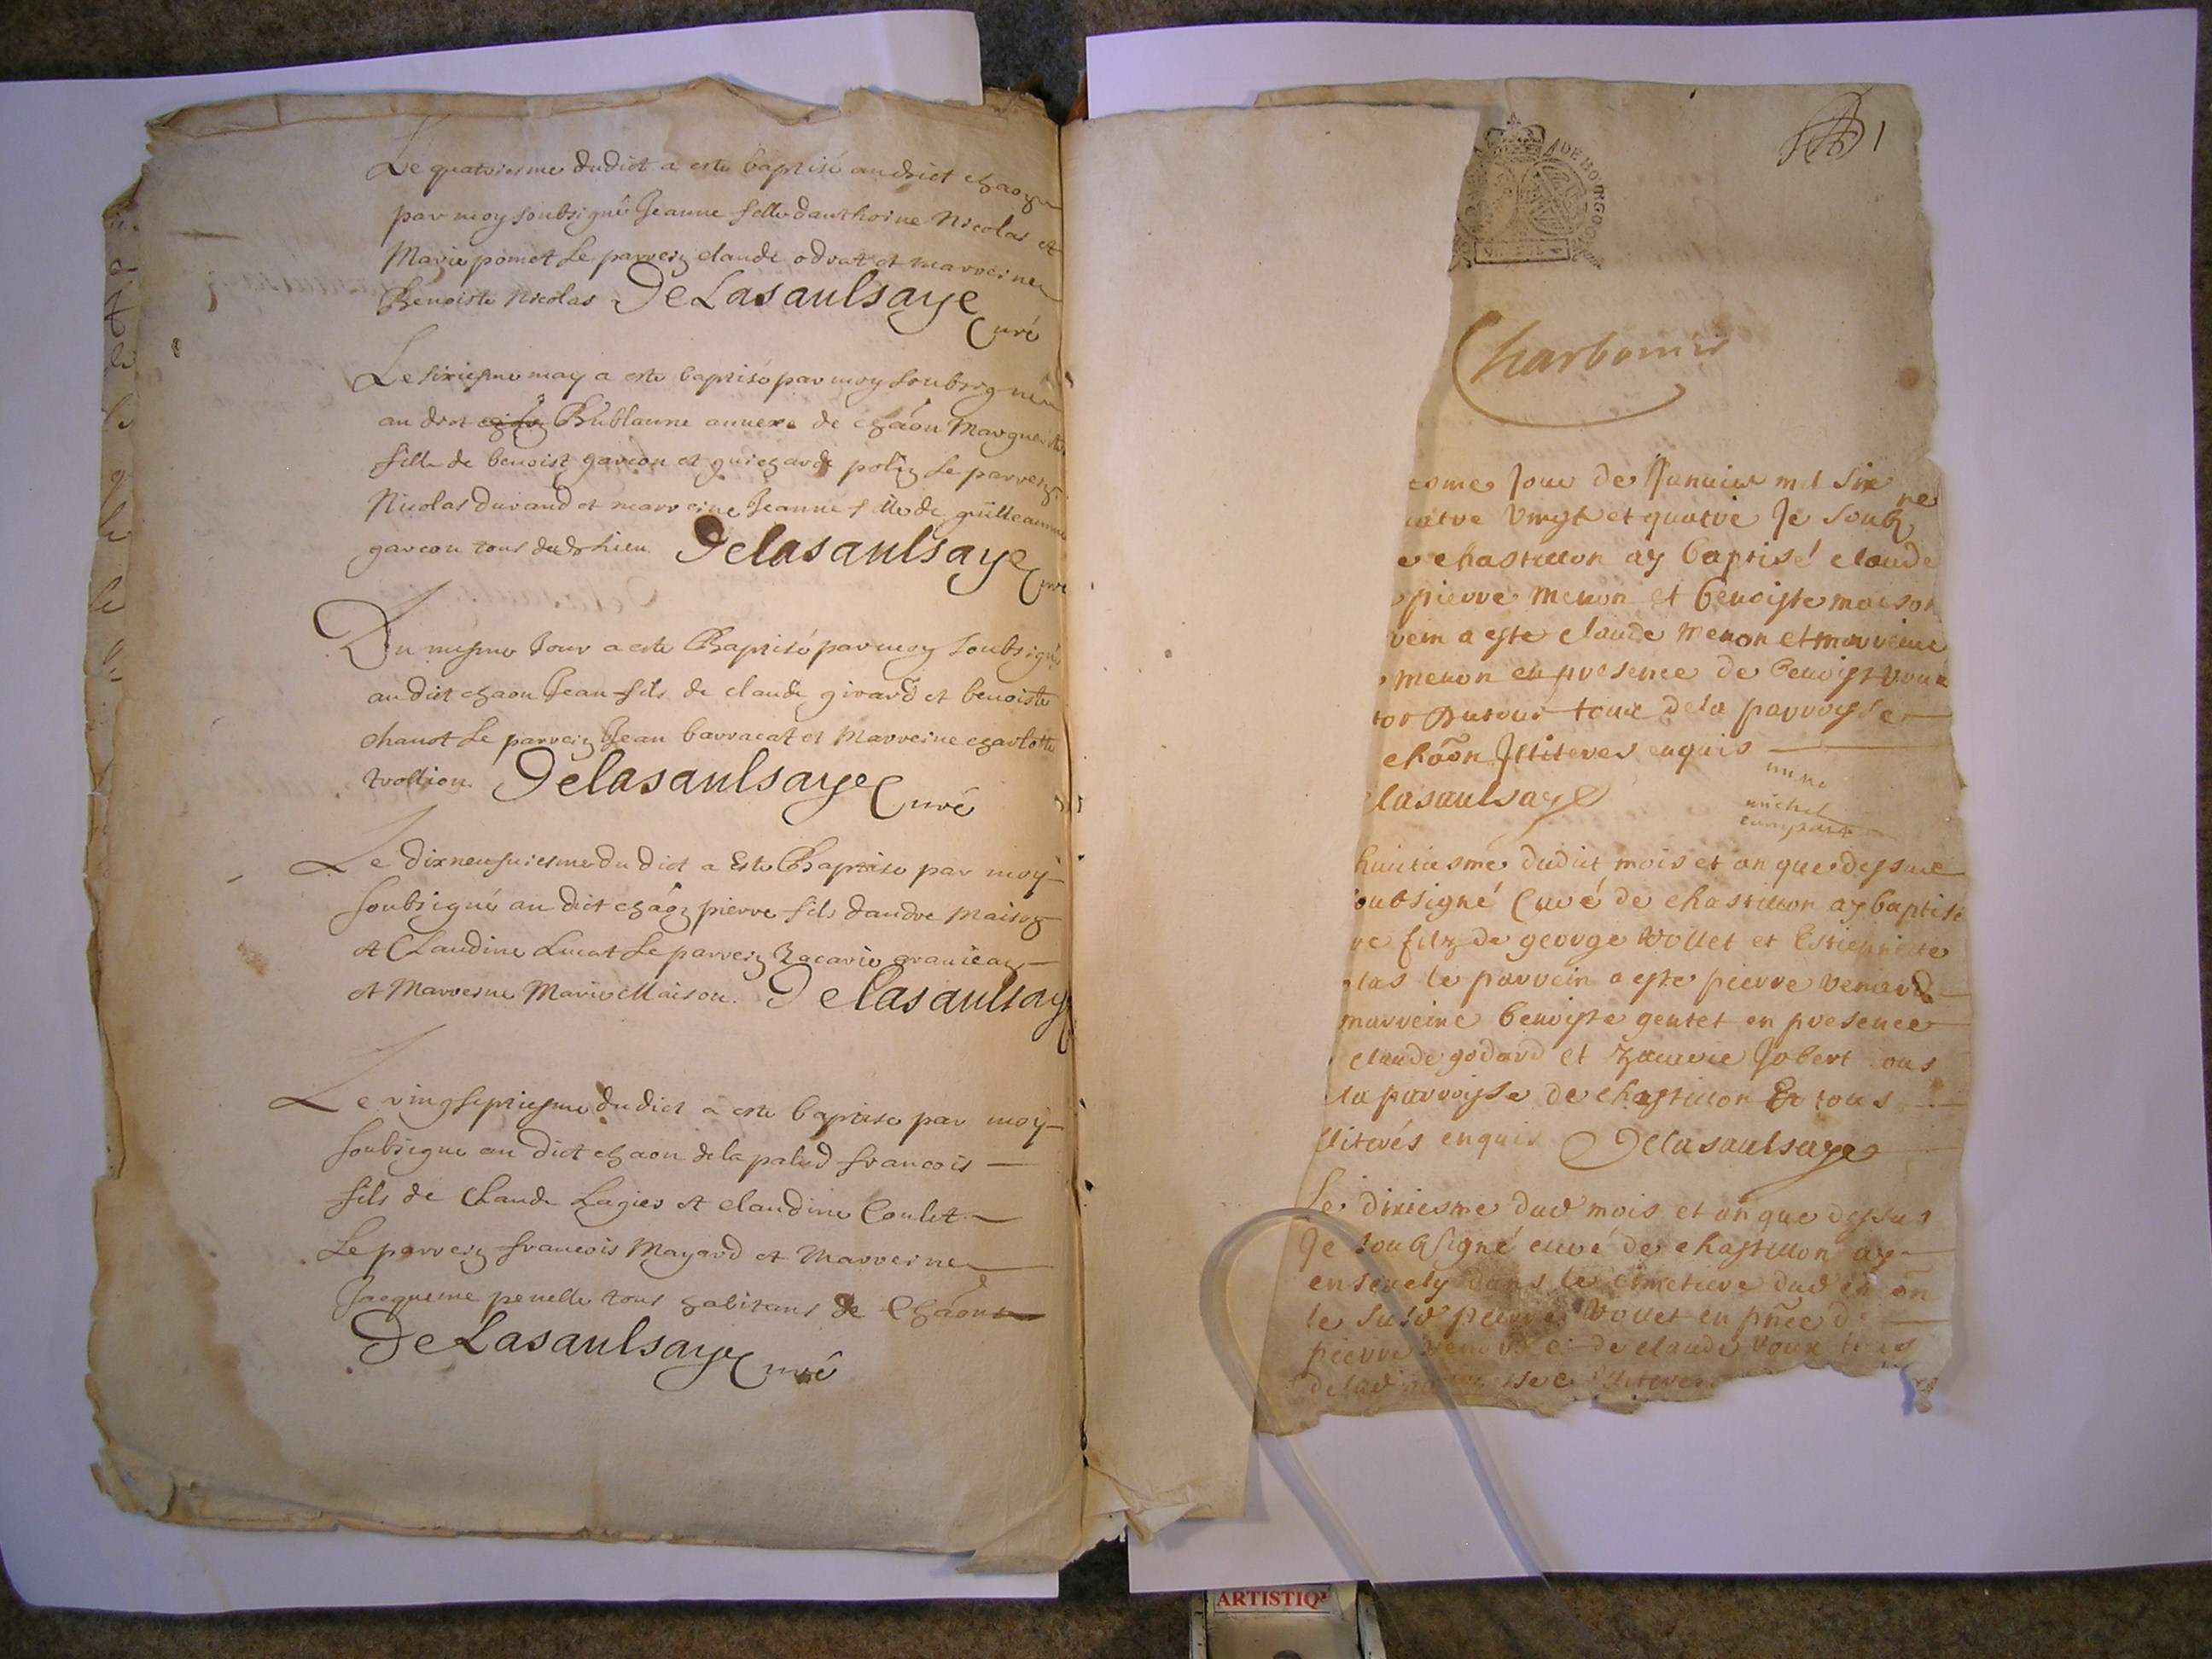 Le quatoriesme dudict a este baptisé audict chaon
par moy soubsigné Jeanne fille danthoine Nicolas et
Marie pomet Le parrein claude odrat et marreine
Benoiste Nicolas DeLasaulsaye
Curé
Le sixiesme may a este baptisé par moy soubsigné
au dict Bublanne annexe de chaon Marguerite
fille de benoist garcon et polin Le parrein
Nicolas durand et marreine Jeanne fille de guilleaume
garcon tous dud lieu Delasaulsaye Curé
Du mesme Jour a este Baptisé par moy soubsigné
audict chaon Jean fils de claude girard et benoiste
chanot Le parrein Jean barracat et Marreine charlotte
vollion Delasaulsaye Curé
Le dixneufuiesme du dict a Este Baptise par moy
soubsigné au dict chaon pierre fils dandre Maison
et Claudine Lucat Le parrein Zacarie
et Marreine Marie Maison. Delasaulsaye
Le vingseptiesme du dict a este baptise par moy
soubsigne au dict chaon de la palud francois
fils de Claude Lagier et claudine Coulet
Le parrein francois Mayard et Marreine
Jacqueme penelle tous habitans de Chaon
DeLasaulsaye Curé
1
DE BOURGO
Charbonnier
esme Jour de Januier mil six
catre vingt et quatre Je soub ne
e chastillon ay baptisé claude
pierre menon et benoiste maison
rein a este claude menon et marreine
menon en presence de benoist voux
tor dutour toux dela parroisse
chaon Jlliteres enquis
lasaulsaye
huitiesme dudit mois et an que dessus
soubsigné Curé de chastillon ay baptisé
re filz de george vollet et Estiennette
las le parrein a este pierre venard
marreine benoiste gentet en presence
claude godard et Zacarie Jobert tous
la parroisse de chastillon Et tous
lliterés enquis Delasaulsaye
Le dixiesme dud mois et an que dessus
Je soubsigné curé de chastillon ay
enseuely dans le cimetiere dud chaon
le susd pierre vollet en pñce de
pierre venard et de claude voux tous
delad parroisse Jlliteres
ARTISTIQ